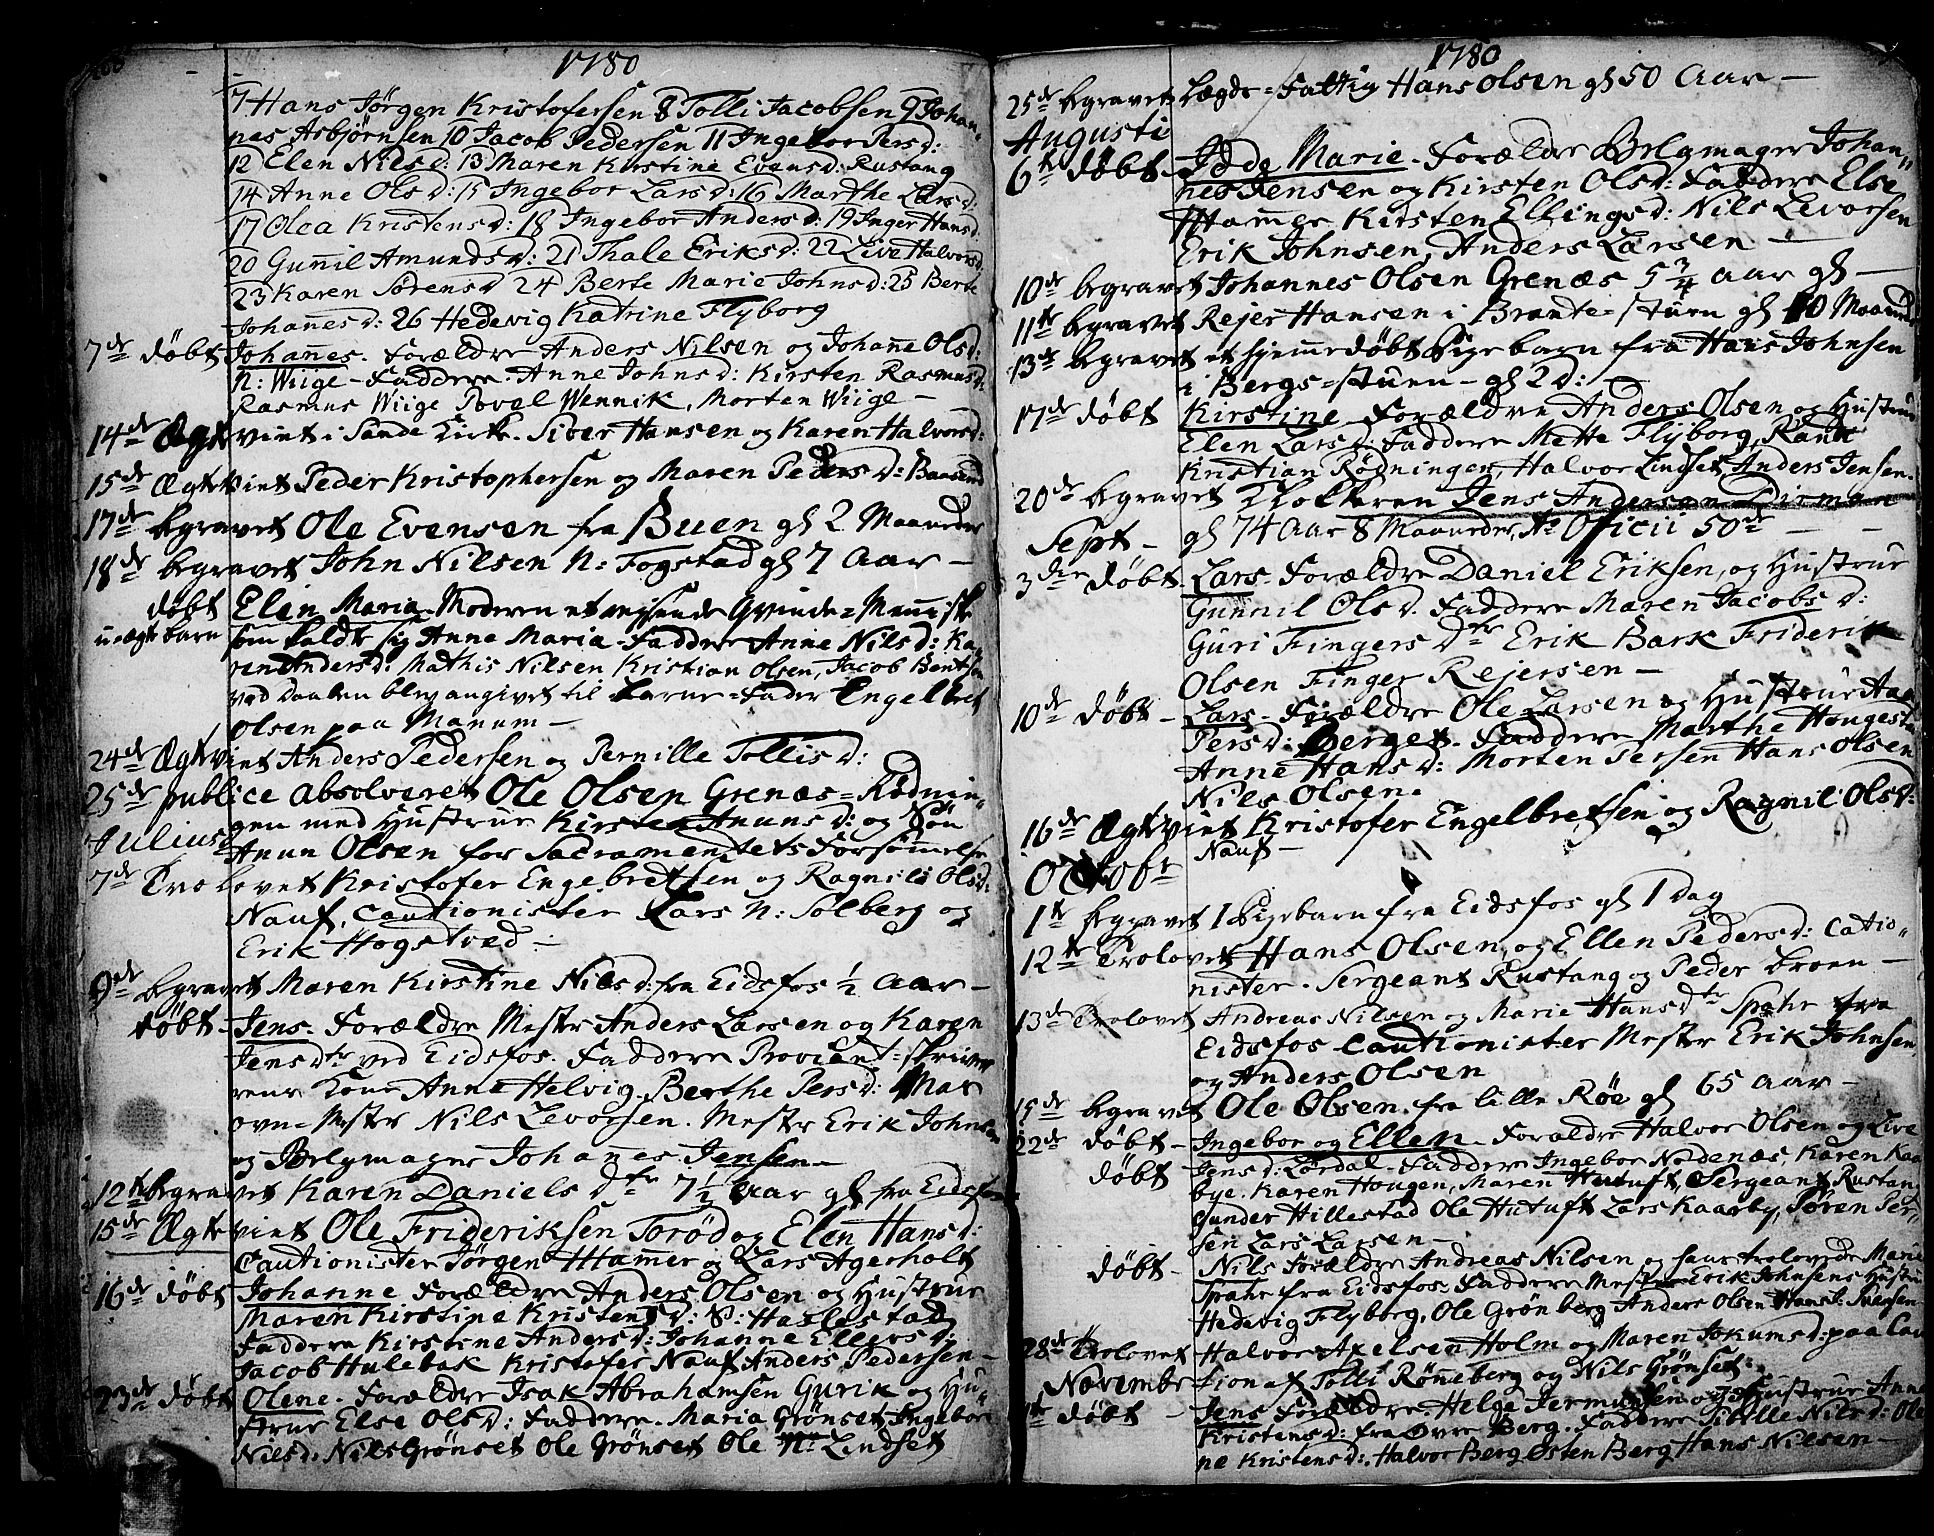 1780
7 Hans Jørgen Kristofersen 8 Tolli Jacobsen 9 Johan-
nes Asbjørnsen 10 Jacob Pedersen 11 Ingebor Persd:
12 Elen Nilsd: 13 Maren Kirstine Evensd: Rustang
14 Anne Olsd: 15 Ingebor Larsd: 16 Marthe Larsd:
17 Olea Kristensd: 18 Ingebor Andersd: 19 Inger Hansd.
20 Gunnil Amundsd: 21 Thale Eriksd: 22 Live Halvorsd.
23 Karen Sørensd 24 Berte Marie Johnsd: 25 Berte
Johannesd: 26 Hedevig Katrine Flyborg
7de døbt Johannes. Forældre Anders Nilsen og Johanne Olsd:
n: Wiige - Faddere. Anne Johnsd: Kirsten Rasmusd:
Rasmus Wiige Povel Wennik, Morten Wiige -
14de Ægtviet i Sande Kirke. Siver Hansen og Karen Halvorsd:
15de Ægtviet Peder Kristophersen og Maren Pedersd:
17de begravet Ole Evensen fra Buen gl 2 Maaneder
18de begravet John Nilsen n: Fogstad gl 7 Aar -
døbt Elen Maria. Moderen et rejsende Qvinde-Menniske
u-ægte barn som kaldte sig Anna Maria. Faddere Anne Nilsd: Ka-
ren Andersd: Mathis Nilsen Kristian Olsen, Jacob Bentsen
ved Daaben blev angivet til Barne-Fader Engelbret
Olsen paa Manum -
24de Ægtviet Anders Pedersen og Pernille Tollisd:
25de publice absolveret Ole Olsen Grenæs-Rødnin-
gen med Hustrue Kirsten Anunsd: og Søn
Julius Anun Olsen for Sacramentets Forsømmelse
7de Trolovet Kristofer Engebretsen og Ragnild Olsd:
Nauf, Cautionister Lars n: Solberg og
Erik Hogstved -
9de begravet Maren Kirstine Nilsd: fra Eidsfos ½ Aar -
døbt - Jens. Forældre Mester Anders Larsen og Karen
Jensdtr ved Eidsfos. Faddere Proviant-skriver
rens Kone Anne Helvig. Berthe Persd: Mas
ovn-Mester Nils Levorsen. Mester Erik Johnsen
og Belgmager Johanes Jensen -
12te begravet Karen Daniels dtr 7½ Aar gl fra Eidsfos
15de Ægtviet Ole Frideriksen Torød og Elen Hansd:
Cautionister Jørgen Hamer og Lars Agerholt
16de døbt Johanne Forældre Anders Olsen og Hustrue
Maren Kirstine Kristensd: S: Haslestad
Faddere Kirstine Andersd: Johanne Ellevsd:
Jacob Hulebak Kristofer Nauf Anders Pedersen -
23de døbt Olene. Forældre Isak Abrahamsen Gurik og Hu-
strue Else Olsd: Faddere. Maria Grønset Ingebor
Nilsd: Nils Grønset Ole Grønset Ole n: Lindset
1780
25de begravet Lægds-Fattig Hans Olsen gl 50 Aar -
Augusti
6te døbt - Idde Marie. Forældre Belgmager Johan-
nes Jensen og Kirsten Olsd: Faddere Else
Hammer Kirsten Ellingsd: Nils Levorsen
Erik Johnsen, Anders Larsen -
10de begravet Johannes Olsen Grenæs 5 3/4 Aar gl -
11te begravet Rejer Hansen i Brante-stuen gl 10 Maaneder
13de begravet et hjemmedøbt Pigebarn fra Hans Johnsen
i Bergs-stuen - gl 2 d:
17de døbt Kirstine Forældre Anders Olsen og Hustrue
Elen Larsd: Faddere Mette Flyborg, Randi
Kristian Rødningen, Halvor Lindset, Anders Jensen.
20de begravet Klokkeren Jens Andersen
Sept - gl 74 Aar 8 Maaneder, Ao Oficii 50de -
3die døbt. Lars. Forældre Daniel Eriksen, og Hustrue
Gunnil Olsd. Faddere Maren Jacobsd:
Guri Fingersdtr Erik Bark Friderik
Olsen Finger Rejersen -
10de døbt - Lars - Forældre Ole Larsen og Hustrue
Persd: Berget. Faddere Marthe Hougestad
Anne Hansd: Morten Persen Hans Olsen
Nils Olsen.
16de Ægtviet Kristofer Engelbretsen og Ragnil Olsd:
Nauf -
Octobr
1te begravet 1 Pigebarn fra Eidsfos gl 1 Dag
12te Trolovet Hans Olsen, og Ellen Pedersd: Catio-
nister. Sergeant Rustang og Peder Broen -
13de Trolovet Andreas Nilsen og Marie Hansdtr Spahr fra
Eidsfos Cautionister Mester Erik Johnsen
og Anders Olsen
15de begravet Ole Olsen. fra lille Røe gl 65 Aar -
22de døbt - Ingebor og Ellen. Forældre Halvor Olsen og Live
døbt Jensd: Lørdal - Faddere Ingebor Nordenæs, Karen Kaa
bye. Karen Hougen, Maren Hutuft, Sergeant Rustan
Gunder Hillestad Ole Hutuft Lars Kaarby, Søren Per-
sen Lars Larsen -
døbt - Nils Forældre Andreas Nilsen og hans trolovede Marie
Spahr fra Eidsfos. Faddere Mester Erik Johnsens Hustrue
Hedevig Flyborg, Ole Grønberg Anders Olsen Hans J: Svensen
28de Trolovet Halvor Axelsen Holm og Maren Jokumsd: paa Cau
Novembr tion af Tolli Rønneberg og Nils Grønset.
døbt - Jens Forældre Helge Jermunsen og Hustrue Anne
Kristensd: fra Øvre Berg. Faddere Sibille Nilsd: Ole
ne Kristensd: Halvor Berg Esten Berg Hans Nilsen -